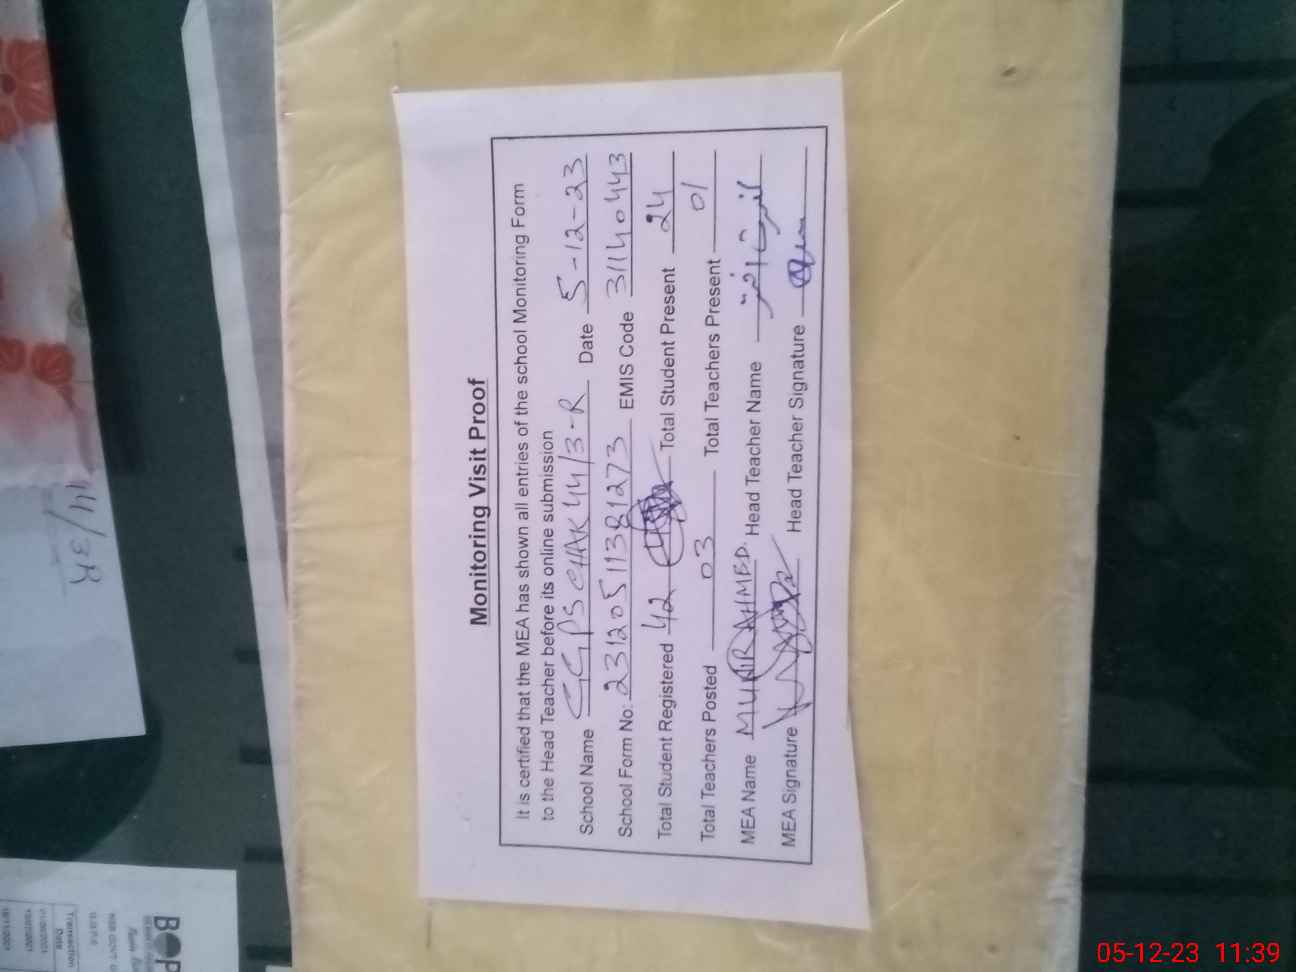 Monitoring Visit Proof
It is certified that the MEA has shown all entries of the school Monitoring Form
to the Head Teacher before its online submission
School Name GGPS CHAK 44/3-R Date 5-12-23
School Form No: 23120511381273 EMIS Code 31140443
Total Student Registered 42 Total Student Present 24
Total Teachers Posted 03 Total Teachers Present 01
MEA Name MUNIR AHMED. Head Teacher Name
MEA Signature Head Teacher Signature
44/3R
BOP
Transaction
Date
05-12-23 11:39